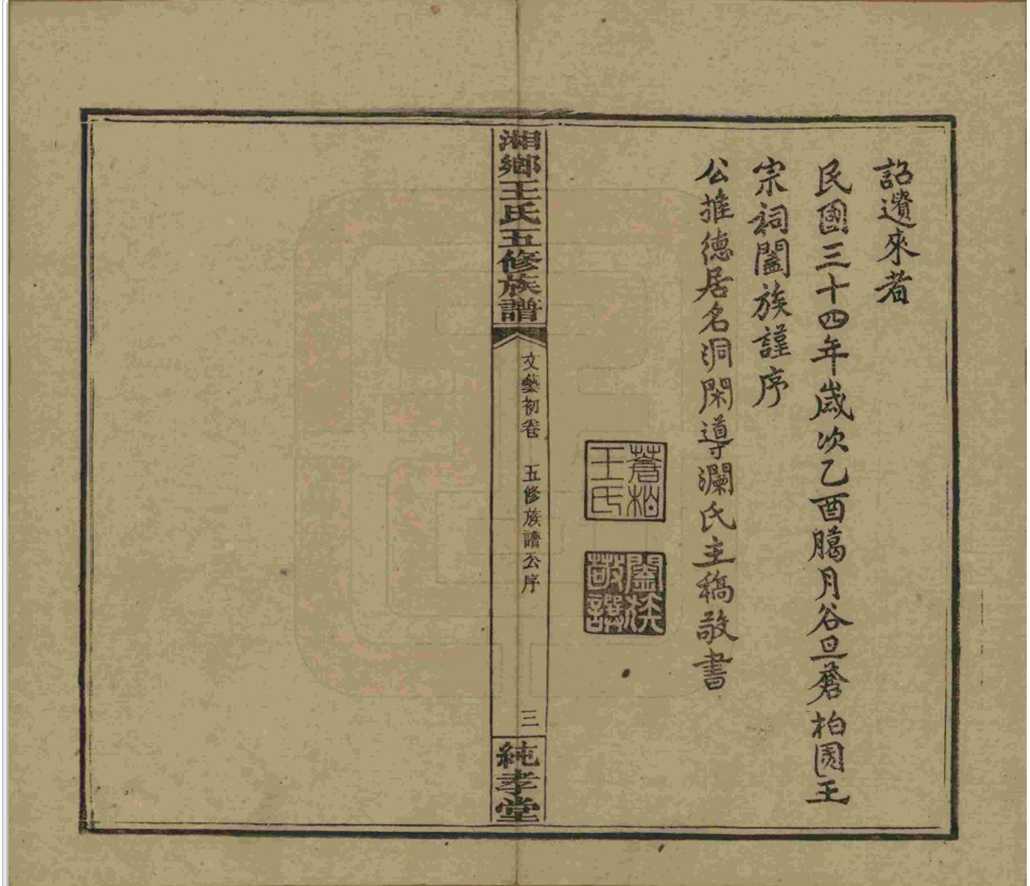 詔遺來者
民國三十四年歲次乙酉臈月谷旦蒼柏園王
宗祠闔族謹序
公推德居名洞閑導瀾氏主稿敬書
蒼柏
王氏
闔族
敬譔
湘鄉王氏五修族譜
文藝初卷 五修族譜公序
三
純孝堂